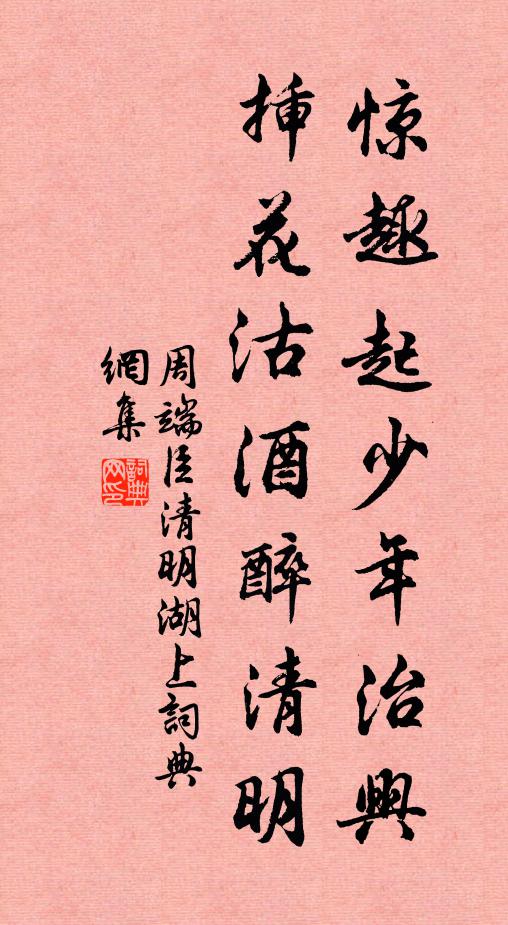 惊趣起少年治興
挿花沽酒醉清明
周端臣清明湖上詞典
網集
詞典网印